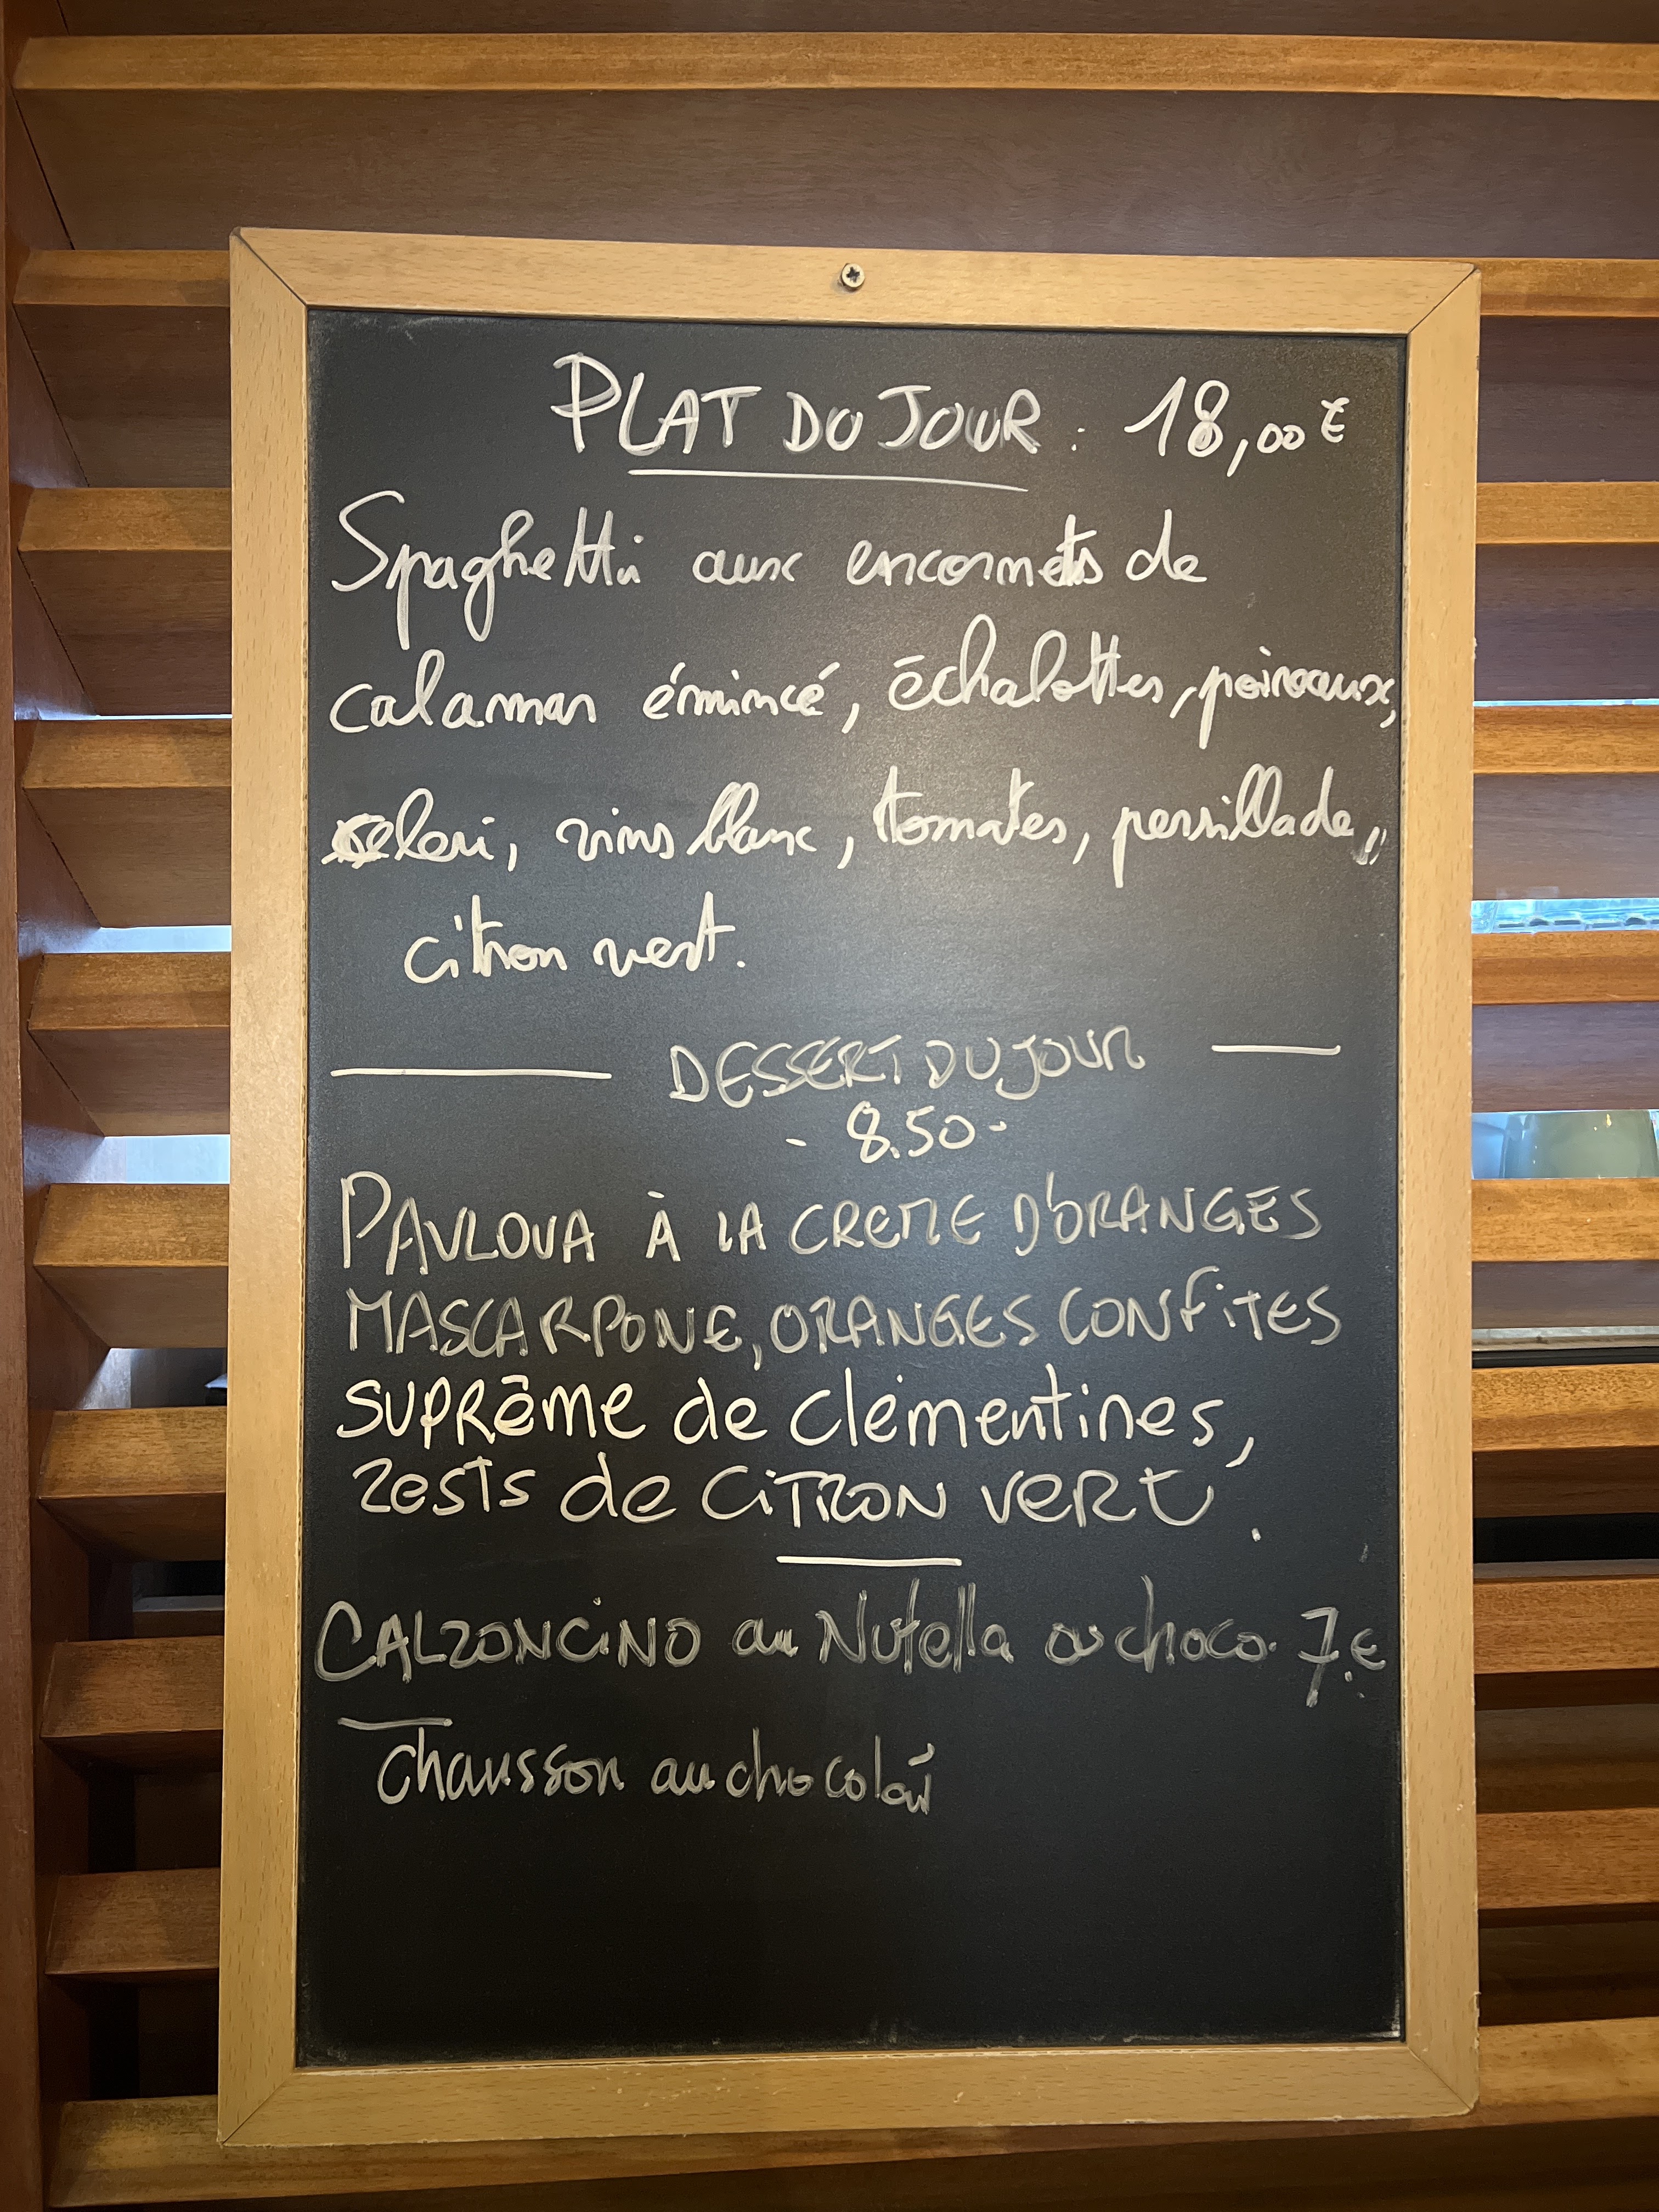 PLAT DU JOUR : 18,00 €
Spaghetti aux encornets de
calamar émincé, échalottes, poireaux,
celeri, vins blanc, tomates, persillade,
citron vert.
DESSERT DU JOUR
- 8.50 -
PAVLOVA À LA CREME D'ORANGES
MASCARPONE, ORANGES CONFITES
SUPRême de Clémentines,
Zests de CiTRON VERT.
CALZONCiNO au Nutella ou choco. 7 €
Chausson au chocolat